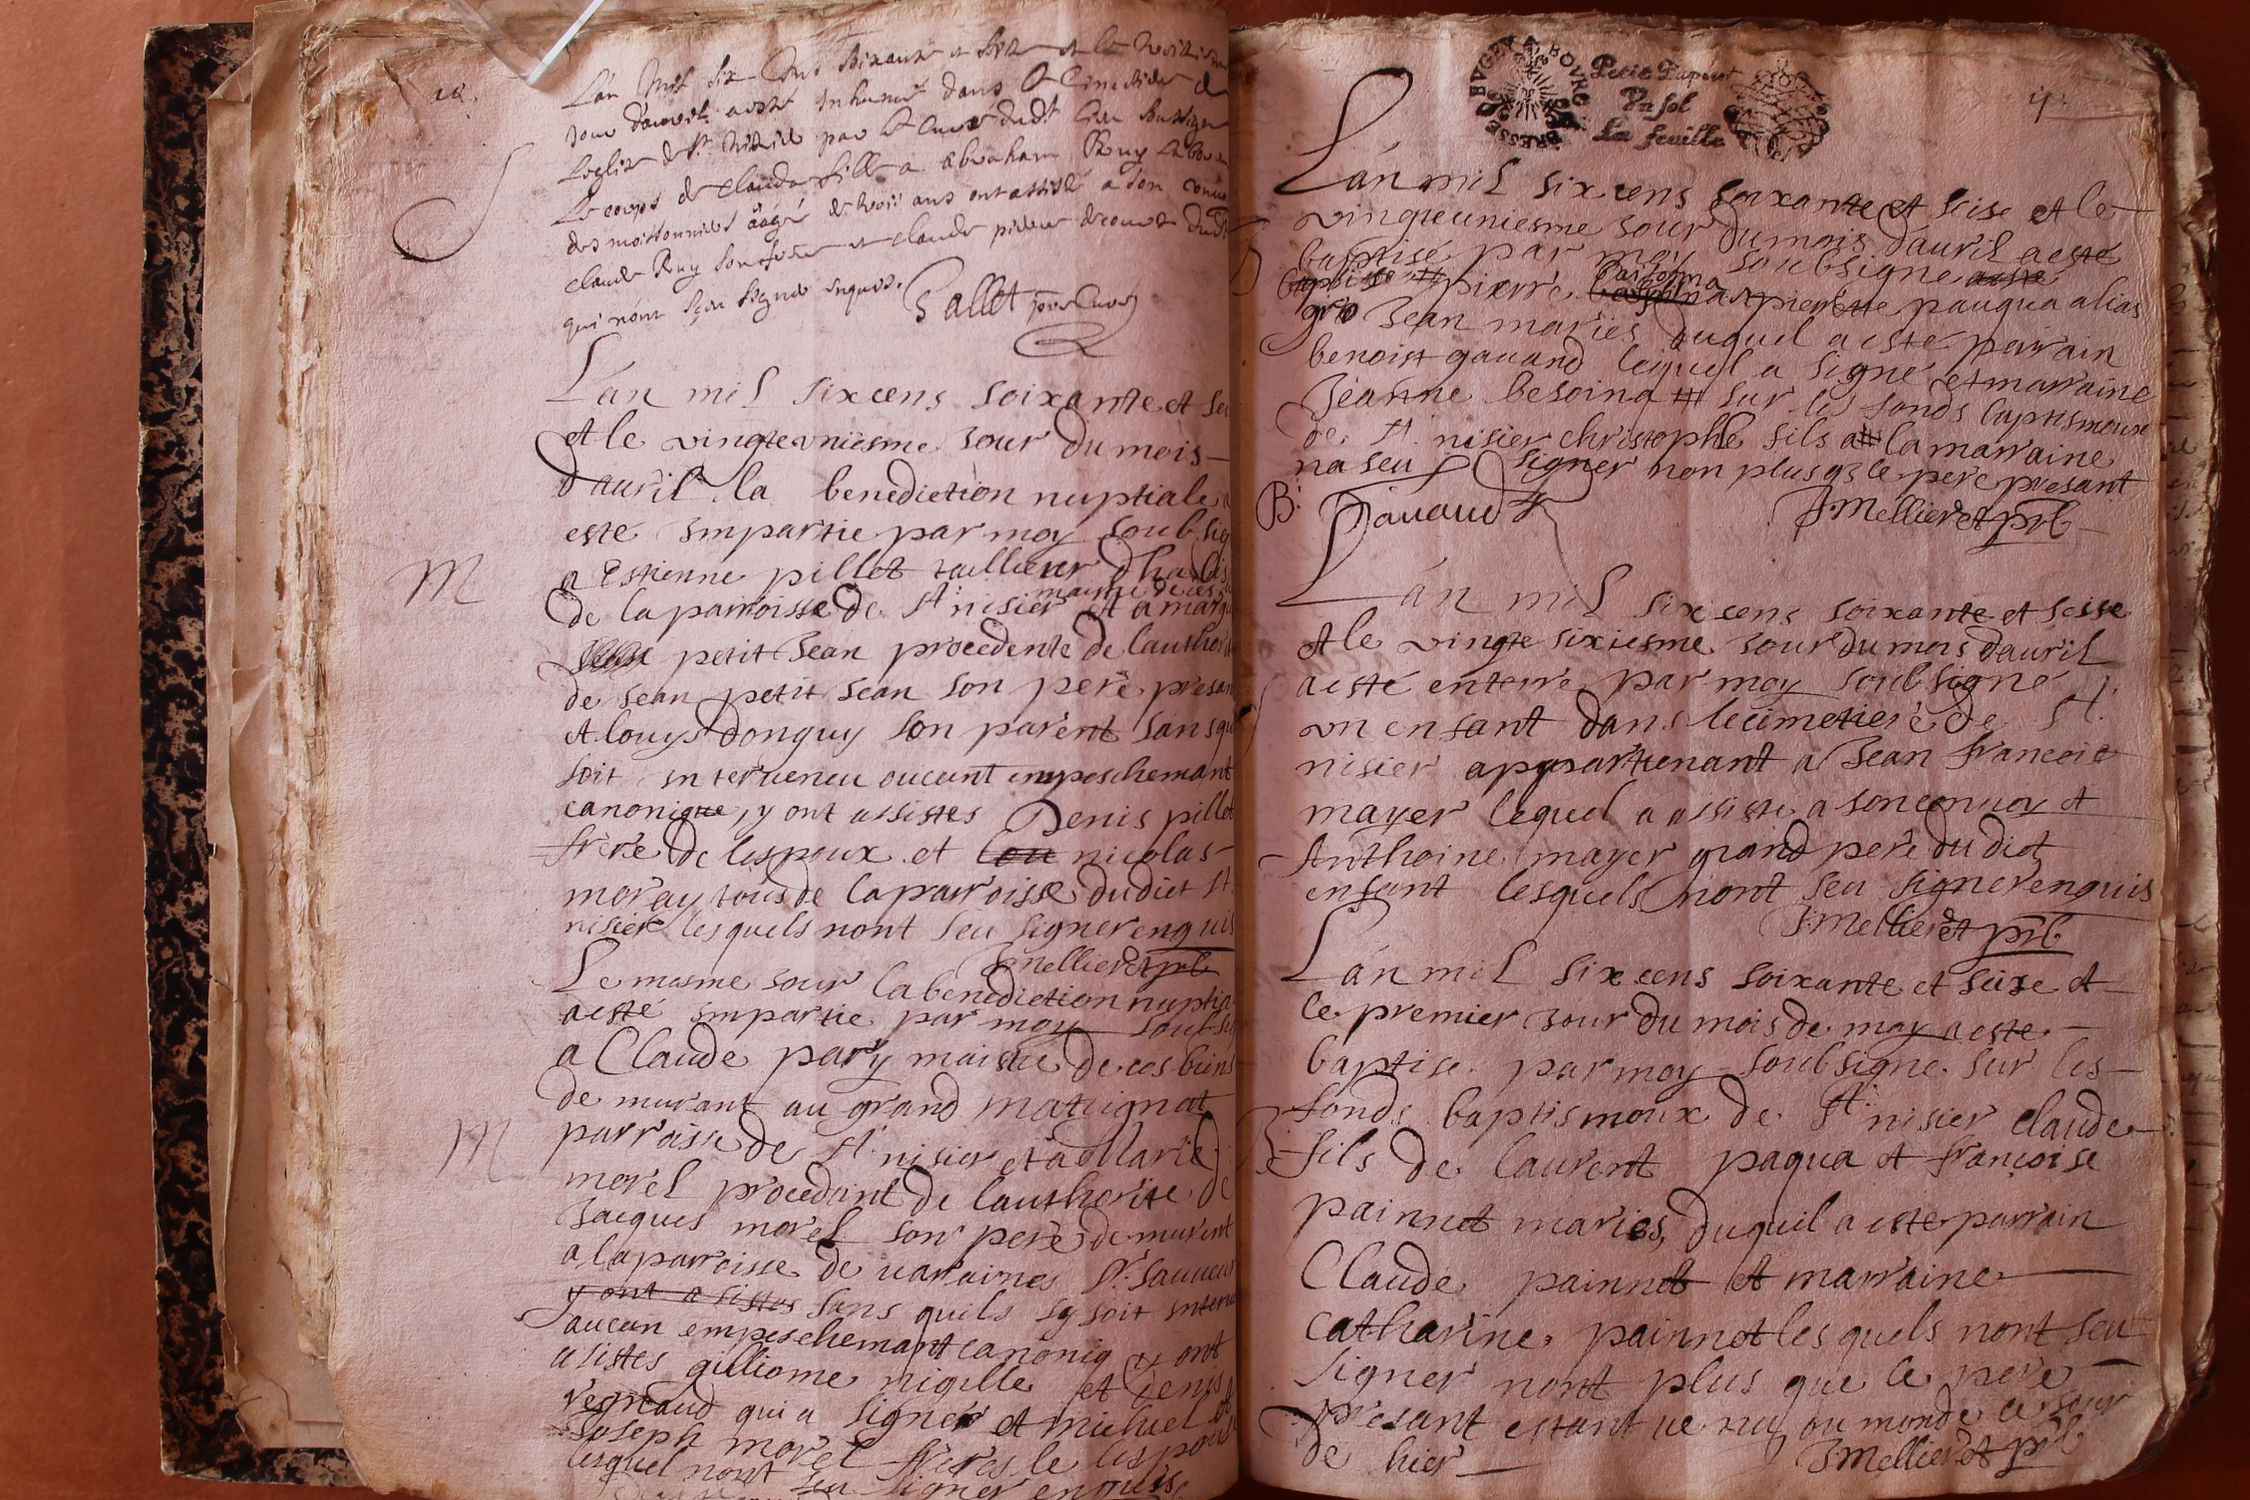 L'an mil six cens soixante et seize et le
jour d'avril a esté inhumé dans le cimetiere de
l'eglise de St. Nisier par le Curé dudt lieu soubsigné
le corps de claude fille a abraham Ruy
des moissonnier aagé de trois ans ont assisté a son convoy
claude Ruy son frere et claude
qui n'ont sceu signer enquis.
Sallet pour Curé
L'an mil six cens soixante et
et le vingte uniesme jour du mois
d'auril la benediction nuptiale
esté impartie par moy soubsig
a Estienne pillet taillieur d'habis
maistre de ces
de la parroisse de St. nisier et a marg
petit Jean procedente de lauthori
de Jean petit Jean son pere presan
et louys donguy son parent sans que
soit interueneu aucunt empeschemant
canonique, y ont assistes Denis pillet
frere de lespoux et nicolas
moray tous de la parroisse dudict St.
nisier lesquels nont seu signer enquis
J Mellieret pbr
Le mesme jour la benediction nuptia
a esté impartie par moy soubsi
a Claude pary maistre de ces biens
de murant au grand matignat
parroisse de St. nisier et a Marie
morel procedant de lauthorite de
Jacques morel son pere demurent
a la parroisse de uaraines St. Sauueur
y ont asistes sans quils sy soit interue
aucun empeschemant canoniq y ont
asistes gilliome nigille et Denis
regnaud qui a signer et michael et
Joseph morel freres le lespouse
lesquel nont seu signer enquis
BVGEY BOVRG BRESSE
Petit Papier
Vn sol
La feuille
L'an mil six cens soixante et seise et le
vingteuniesme jour du mois d'auril a esté
baptisé par moy soubsigne a esté
baptise pierre pierrette pauqua alias
gro Jean maries duquel a esté parrain
benoist gauand lequel a signé et marraine
Jeanne besoina sur les fonds baptismoux
de St. nisier christophle fils a la marraine
na seu signer non plus q; le pere presant
B.
Gauaud
J Mellieret pbr
L'an mil six cens soixante et seise
et le vingte sixiesme jour du mois d'auril
a esté enterre par moy soubsigné
un ensant dans le cimetiere de St.
nisier appartrenant a Jean francois
mayer lequel a assiste a son conuoy et
Anthoine mayer grand pere du dict
ensant lesquels nont seu signer enquis
J Mellieret pbr
L'an mil six cens soixante et seize et
le premier jour du mois de may a este
baptise par moy soubsigne sur les
fonds baptismoux de St. nisier claude
fils de laurent paqua et françoise
painnet maries, duquel a este parrain
Claude painnet et marraine
Catharine painnet lesquels nont seu
signer nont plus que le pere
presant estant uenu au monde ce jour
de hier
J Mellieret pbr